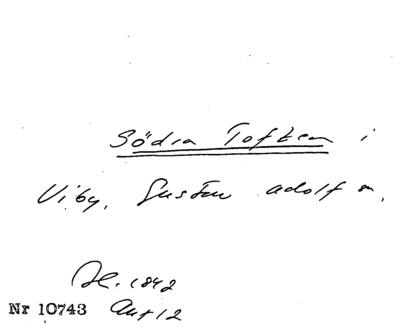 Södra Toften i
Viby, Gustav adolf s.
Sk. 1842
Nr 10743 Akt 12